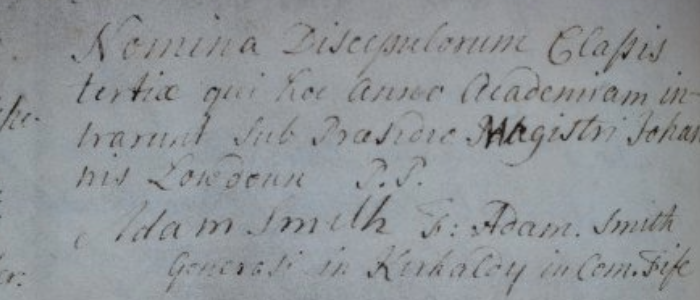 Nomina Discipulorum Classis
tertiæ qui hoc anno Academiam in-
trarunt sub Præsidio Magistri Johan
nis Lowdoun P.P.
Adam Smith F: Adam. Smith
Generosi in Kirkaldy in Com. Fife